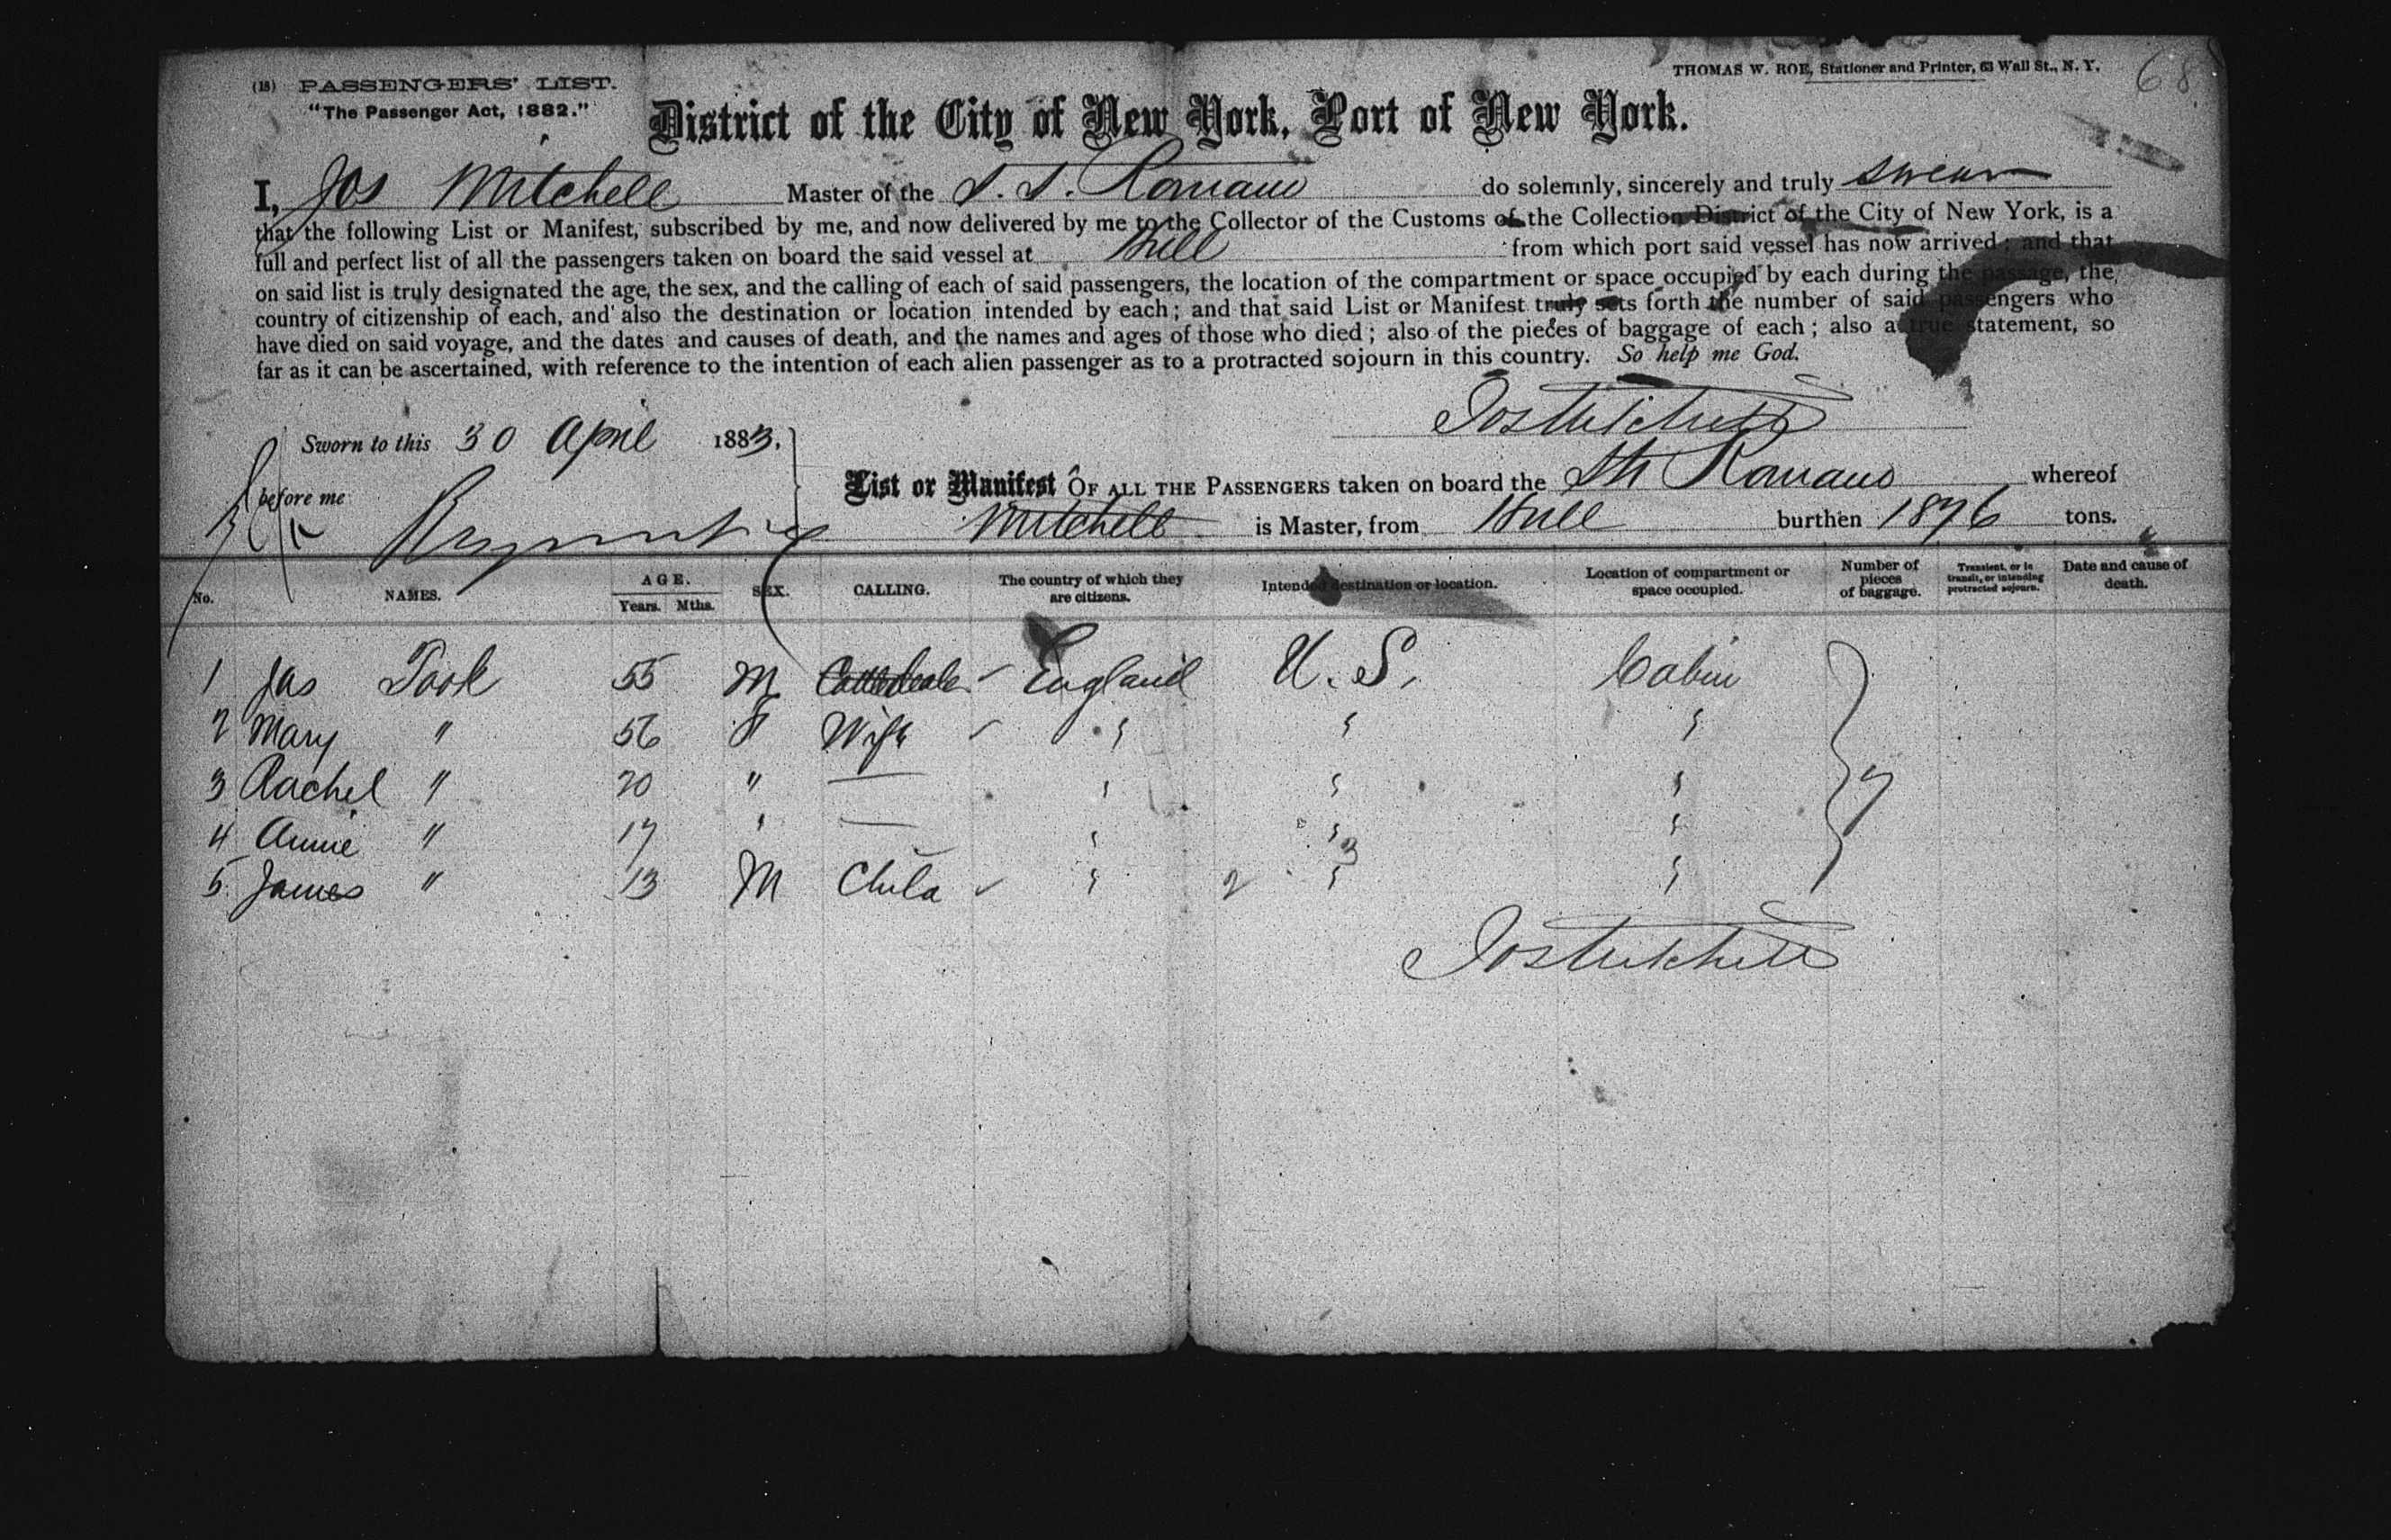 (18) PASSENGERS' LIST.
THOMAS W. ROE, Stationer and Printer, 63 Wall St., N. Y.
68
"The Passenger Act, 1882."
District of the City of New York, Port of New York.
I, Jos Mitchell Master of the S. S. Romano do solemnly, sincerely and truly swear
that the following List or Manifest, subscribed by me, and now delivered by me to the Collector of the Customs of the Collection District of the City of New York, is a
full and perfect list of all the passengers taken on board the said vessel at Hull from which port said vessel has now arrived; and that
on said list is truly designated the age, the sex, and the calling of each of said passengers, the location of the compartment or space occupied by each during the passage, the
country of citizenship of each, and also the destination or location intended by each; and that said List or Manifest truly sets forth the number of said passengers who
have died on said voyage, and the dates and causes of death, and the names and ages of those who died; also of the pieces of baggage of each; also a true statement, so
far as it can be ascertained, with reference to the intention of each alien passenger as to a protracted sojourn in this country. So help me God.
Jos Mitchell
Sworn to this 30 April 1883.
before me
List or Manifest OF ALL THE PASSENGERS taken on board the Str Romano whereof
Mitchell is Master, from Hull burthen 1876 tons.
No. NAMES. AGE. Years. Mths. SEX. CALLING. The country of which they are citizens. Intended destination or location. Location of compartment or space occupied. Number of pieces of baggage. Transient, or in transit, or intending protracted sojourn. Date and cause of death.
1 Jas Took 55 M England U. S. Cabin
2 Mary " 56 F Wife " " "
3 Rachel " 20 " — " " "
4 Annie " 17 " — " " "
5 James " 13 M Child " 2 " "
7
Jos Mitchell